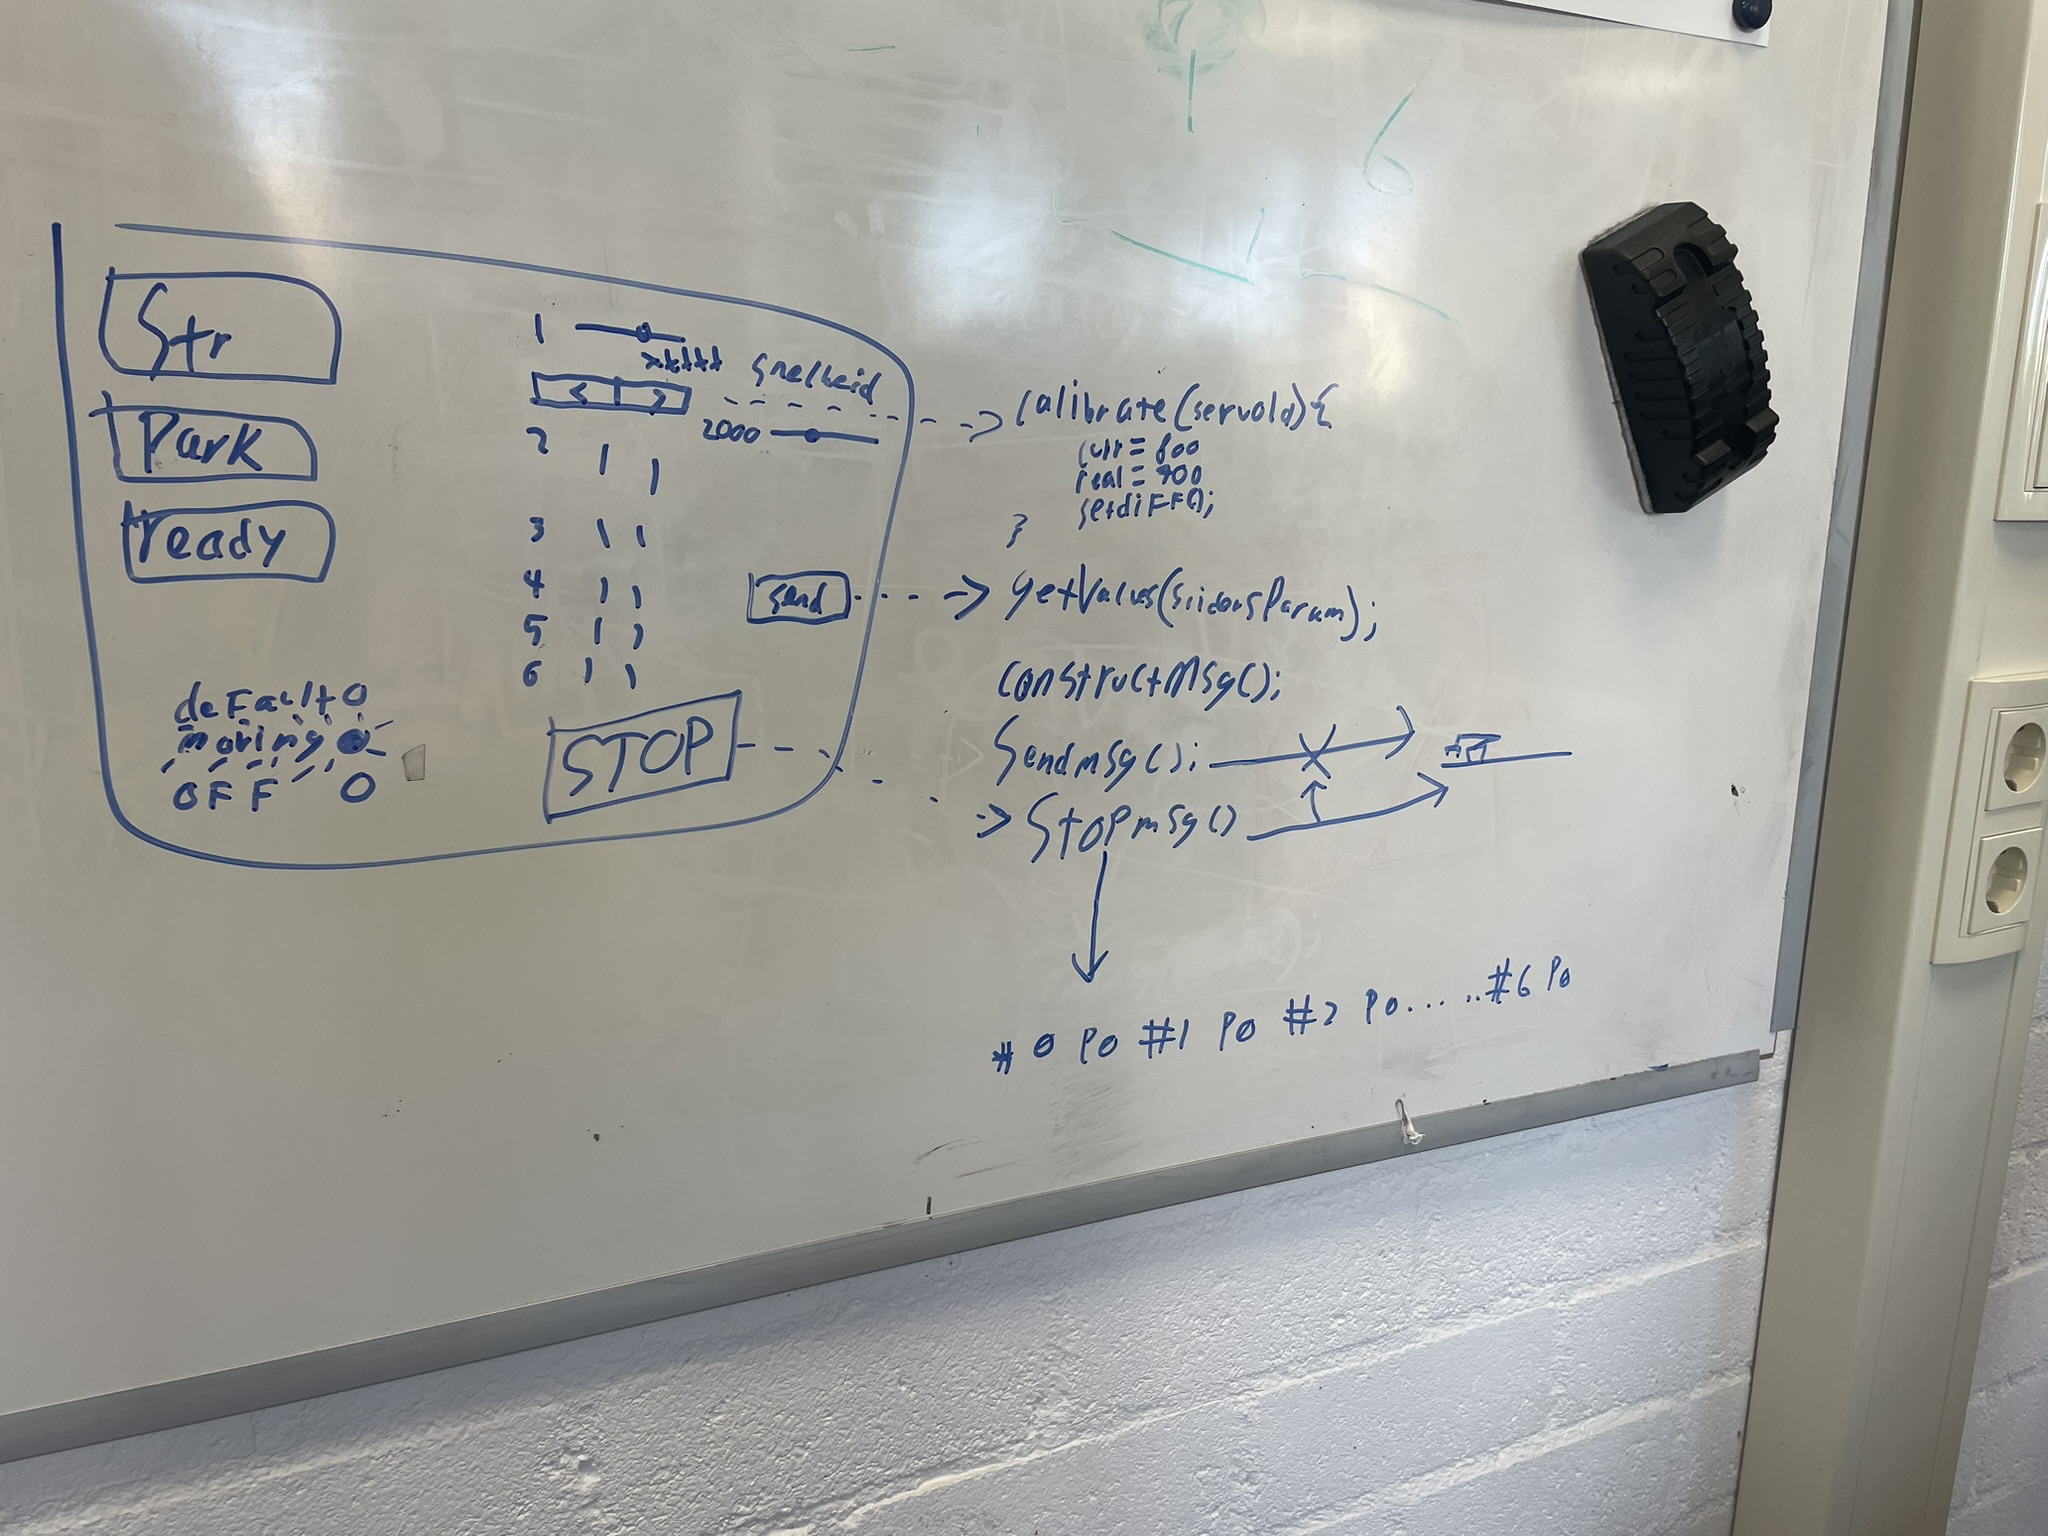 Str
Park
ready
default O
moving
OFF O
1
< >
snelheid
2000
2
3
4
5
6
send
STOP
calibrate(servoId){
curr = 800
real = 900
setdiFF();
}
getValues(slidersParam);
constructMsg();
Sendmsg();
StoPmsg()
# 0 P0 #1 P0 #2 P0.......#6 P0
6